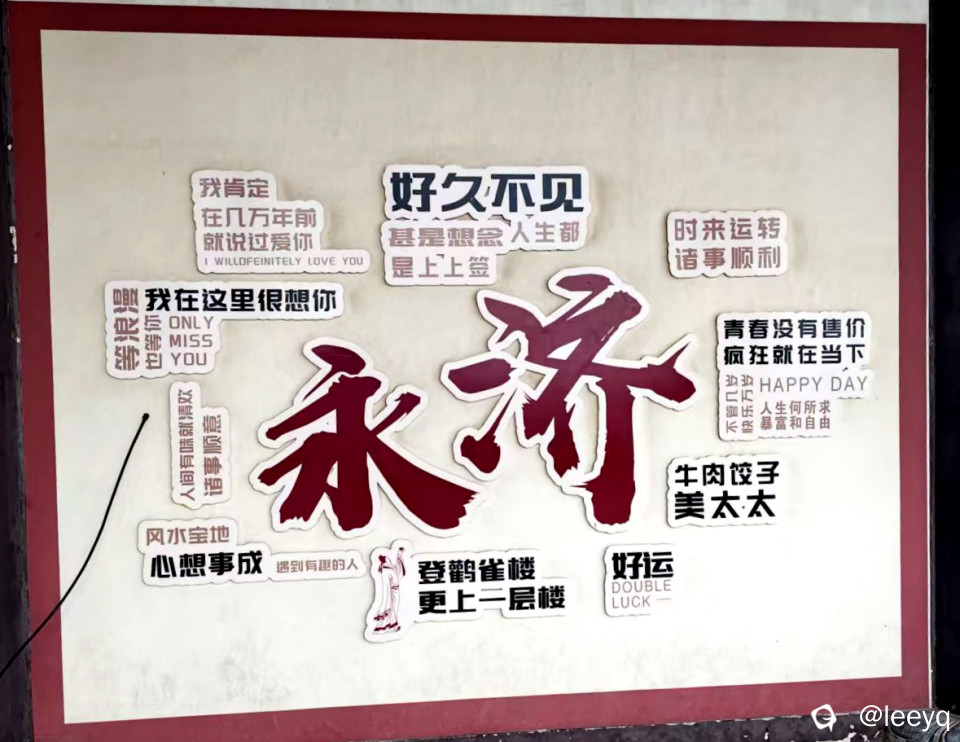 我肯定
在几万年前
就说过爱你
I WILLDFEINITELY LOVE YOU
好久不见
甚是想念 人生都
是上上签
时来运转
诸事顺利
等浪漫
我在这里很想你
也等你
ONLY
MISS
YOU
永济
青春没有售价
疯狂就在当下
不管几岁
快乐万岁
HAPPY DAY
人生何所求
暴富和自由
人间有味就清欢
诸事顺意
牛肉饺子
美太·太
风水宝地
心想事成
遇到有趣的人
登鹳雀楼
更上一层楼
好运
DOUBLE
LUCK
@leeyq